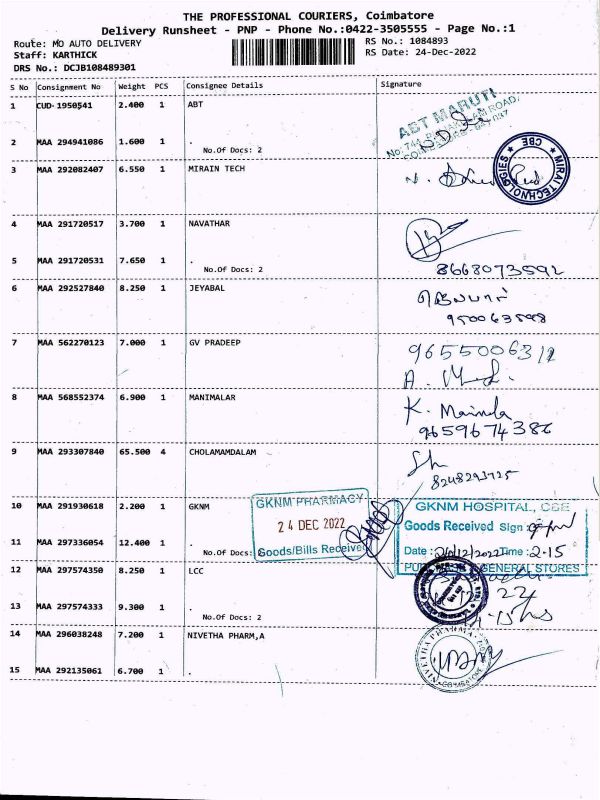 THE PROFESSIONAL COURIERS, Coimbatore
Delivery Runsheet - PNP - Phone No.:0422-3505555 - Page No.:1
Route: MO AUTO DELIVERY
Staff: KARTHICK
DRS No.: DCJB108489301
RS No.: 1084893
RS Date: 24-Dec-2022
S No Consignment No Weight PCS Consignee Details Signature
1 CUD-1950541 2.400 1 ABT
ABT MARUTI
2 MAA 294941086 1.600 1 .
No.Of Docs: 2
3 MAA 292082407 6.550 1 MIRAIN TECH
MIRAI TECHNOLOGIES CBE
4 MAA 291720517 3.700 1 NAVATHAR
5 MAA 291720531 7.650 1 .
No.Of Docs: 2
8668073592
6 MAA 292527840 8.250 1 JEYABAL
ஜெயபால்
7 MAA 562270123 7.000 1 GV PRADEEP
8 MAA 568552374 6.900 1 MANIMALAR
K.
9659674386
9 MAA 293307840 65.500 4 CHOLAMAMDALAM
8248293725
10 MAA 291930618 2.200 1 GKNM
GKNM PHARMACY
24 DEC 2022
Goods/Bills Received
GKNM HOSPITAL, CBE
Goods Received Sign :
Date : 24/12/2022 Time : 2-15
GENERAL STORES
11 MAA 297336054 12.400 1 .
No.Of Docs:
12 MAA 297574350 8.250 1 LCC
13 MAA 297574333 9.300 1 .
No.Of Docs: 2
14 MAA 296038248 7.200 1 NIVETHA PHARM,A
NIVETHA PHARMA
COIMBATORE
15 MAA 292135061 6.700 1 .